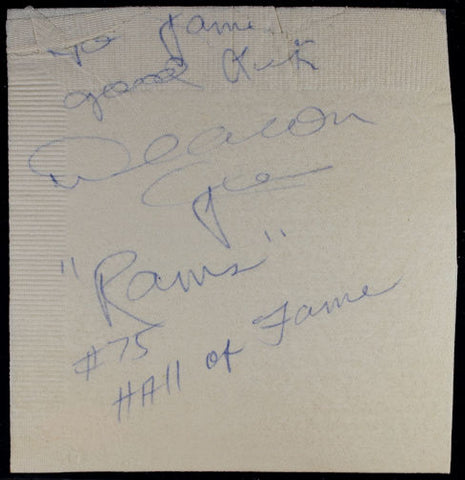 To Jamie
good luck
Deacon
Jones
"Rams"
#75
HAll of Fame